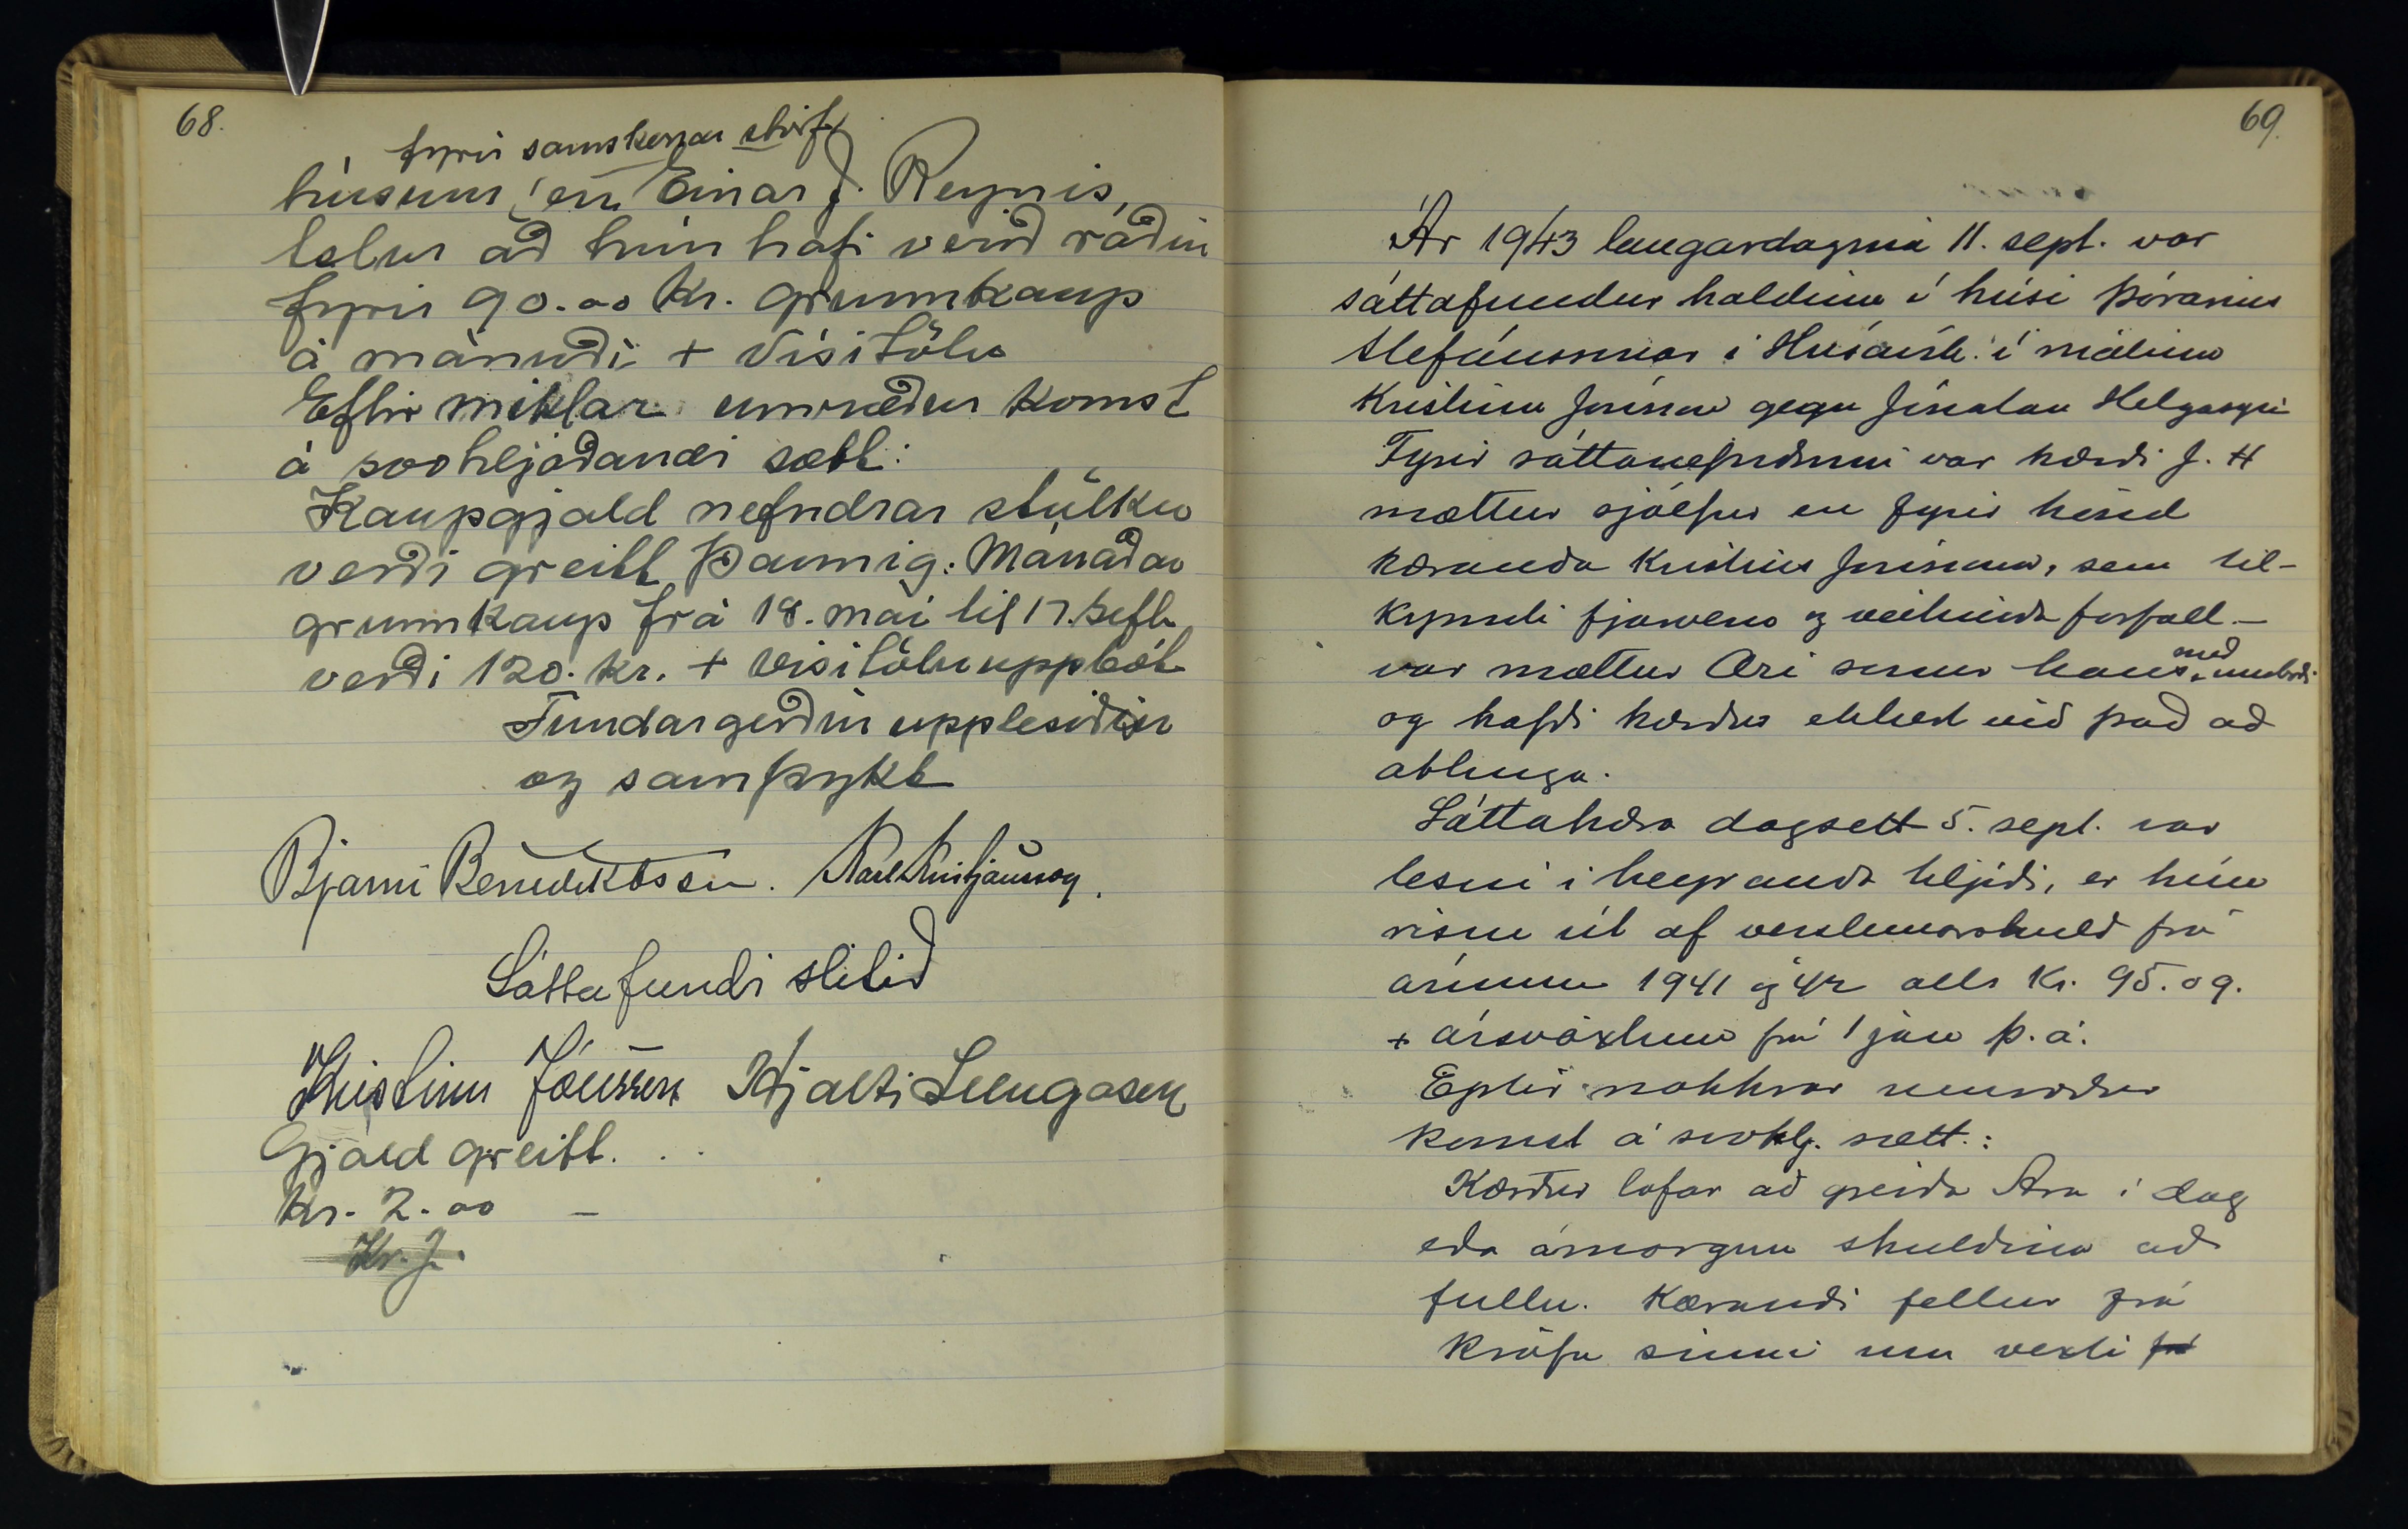 68.
fyrir samskonar störf
húsum, en Einar J. Reynis,
telur að hún hafi verið ráðin
fyrir 90.00 kr. grunnkaup
á mánuði + Vísitölu
Eftir miklar umræður komst
á svohljóðandi sætt:
Kaupgjald nefndrar stúlku
verði greitt þannig: Mánaðar
grunnkaup frá 18. maí til 17. sept.
verði 120. kr. + vísitöluuppbót
Fundargerðin upplesin
og samþykt
Bjarni Benediktsson. Karl Kristjánsson.
Sáttafundi slitið
Kristinn Jónsson Hjalti Illugason
Gjald greitt. . .
Kr. 2.00 –
Kr. J.
69.
Ár 1943 laugardaginn 11. sept. var
sáttafundur haldinn í húsi Þórarins
Stefánssonar í Húsavík í málinu
Kristinn Jónsson gegn Jónatan Helgasyni
Fyrir sáttanefndinni var kærði J. H
mættur sjálfur en fyrir hönd
kæranda Kristins Jónssonar, sem til-
kynnti fjarveru og veikinda forfall –
var mættur Ari sonur hans með umboði
og hafði kærður ekkert við það að
athuga.
Sáttakæra dagsett 5. sept. var
lesin í heyranda hljóði, er hún
risin út af verslunarskuld frá
árinu 1941 og 42 alls kr. 95.09.
+ ársvöxtum frá 1 jan þ. á.
Eptir nokkrar umræður
komst á svohlj. sætt.:
Kærður lofar að greiða Ara í dag
eða ámorgun skuldina að
fullu. Kærandi fellur frá
kröfu sinni um vexti frá